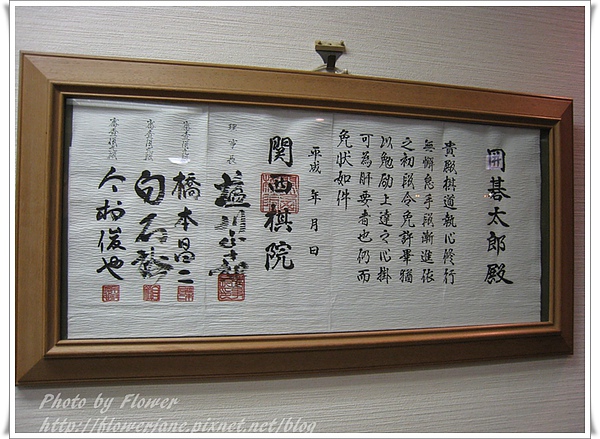 囲碁太郎殿
貴殿棋道執心修行
無懈怠手段漸進依
之初段令免許畢猶
以勉励上達之心掛
可為肝要者也仍而
免状如件
平成 年 月 日
関西棋院
理事長
審査役九段
橋本昌二
審査役九段
白石裕
審査役九段
今村俊也
Photo by Flower
http://flowerjane.pixnet.net/blog